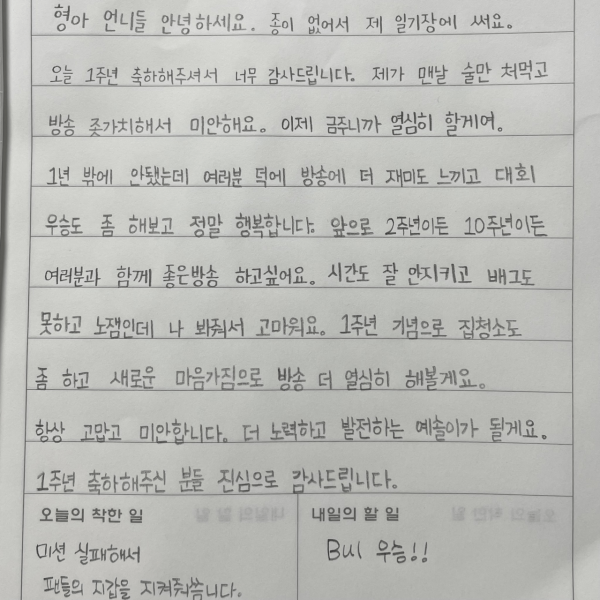 형아 언니들 안녕하세요. 종이 없어서 제 일기장에 써요.
오늘 1주년 축하해주셔서 너무 감사드립니다. 제가 맨날 술만 처먹고
방송 좃가치해서 미안해요. 이제 금주니까 열심히 할게여.
1년 밖에 안됐는데 여러분 덕에 방송에 더 재미도 느끼고 대회
우승도 좀 해보고 정말 행복합니다. 앞으로 2주년이든 10주년이든
여러분과 함께 좋은방송 하고싶어요. 시간도 잘 안지키고 배그도
못하고 노잼인데 나 봐줘서 고마워요. 1주년 기념으로 집청소도
좀 하고 새로운 마음가짐으로 방송 더 열심히 해볼게요.
항상 고맙고 미안합니다. 더 노력하고 발전하는 예솔이가 될게요.
1주년 축하해주신 분들 진심으로 감사드립니다.
오늘의 착한 일
미션 실패해서
팬들의 지갑을 지켜줘씀니다.
내일의 할 일
BUL 우승!!